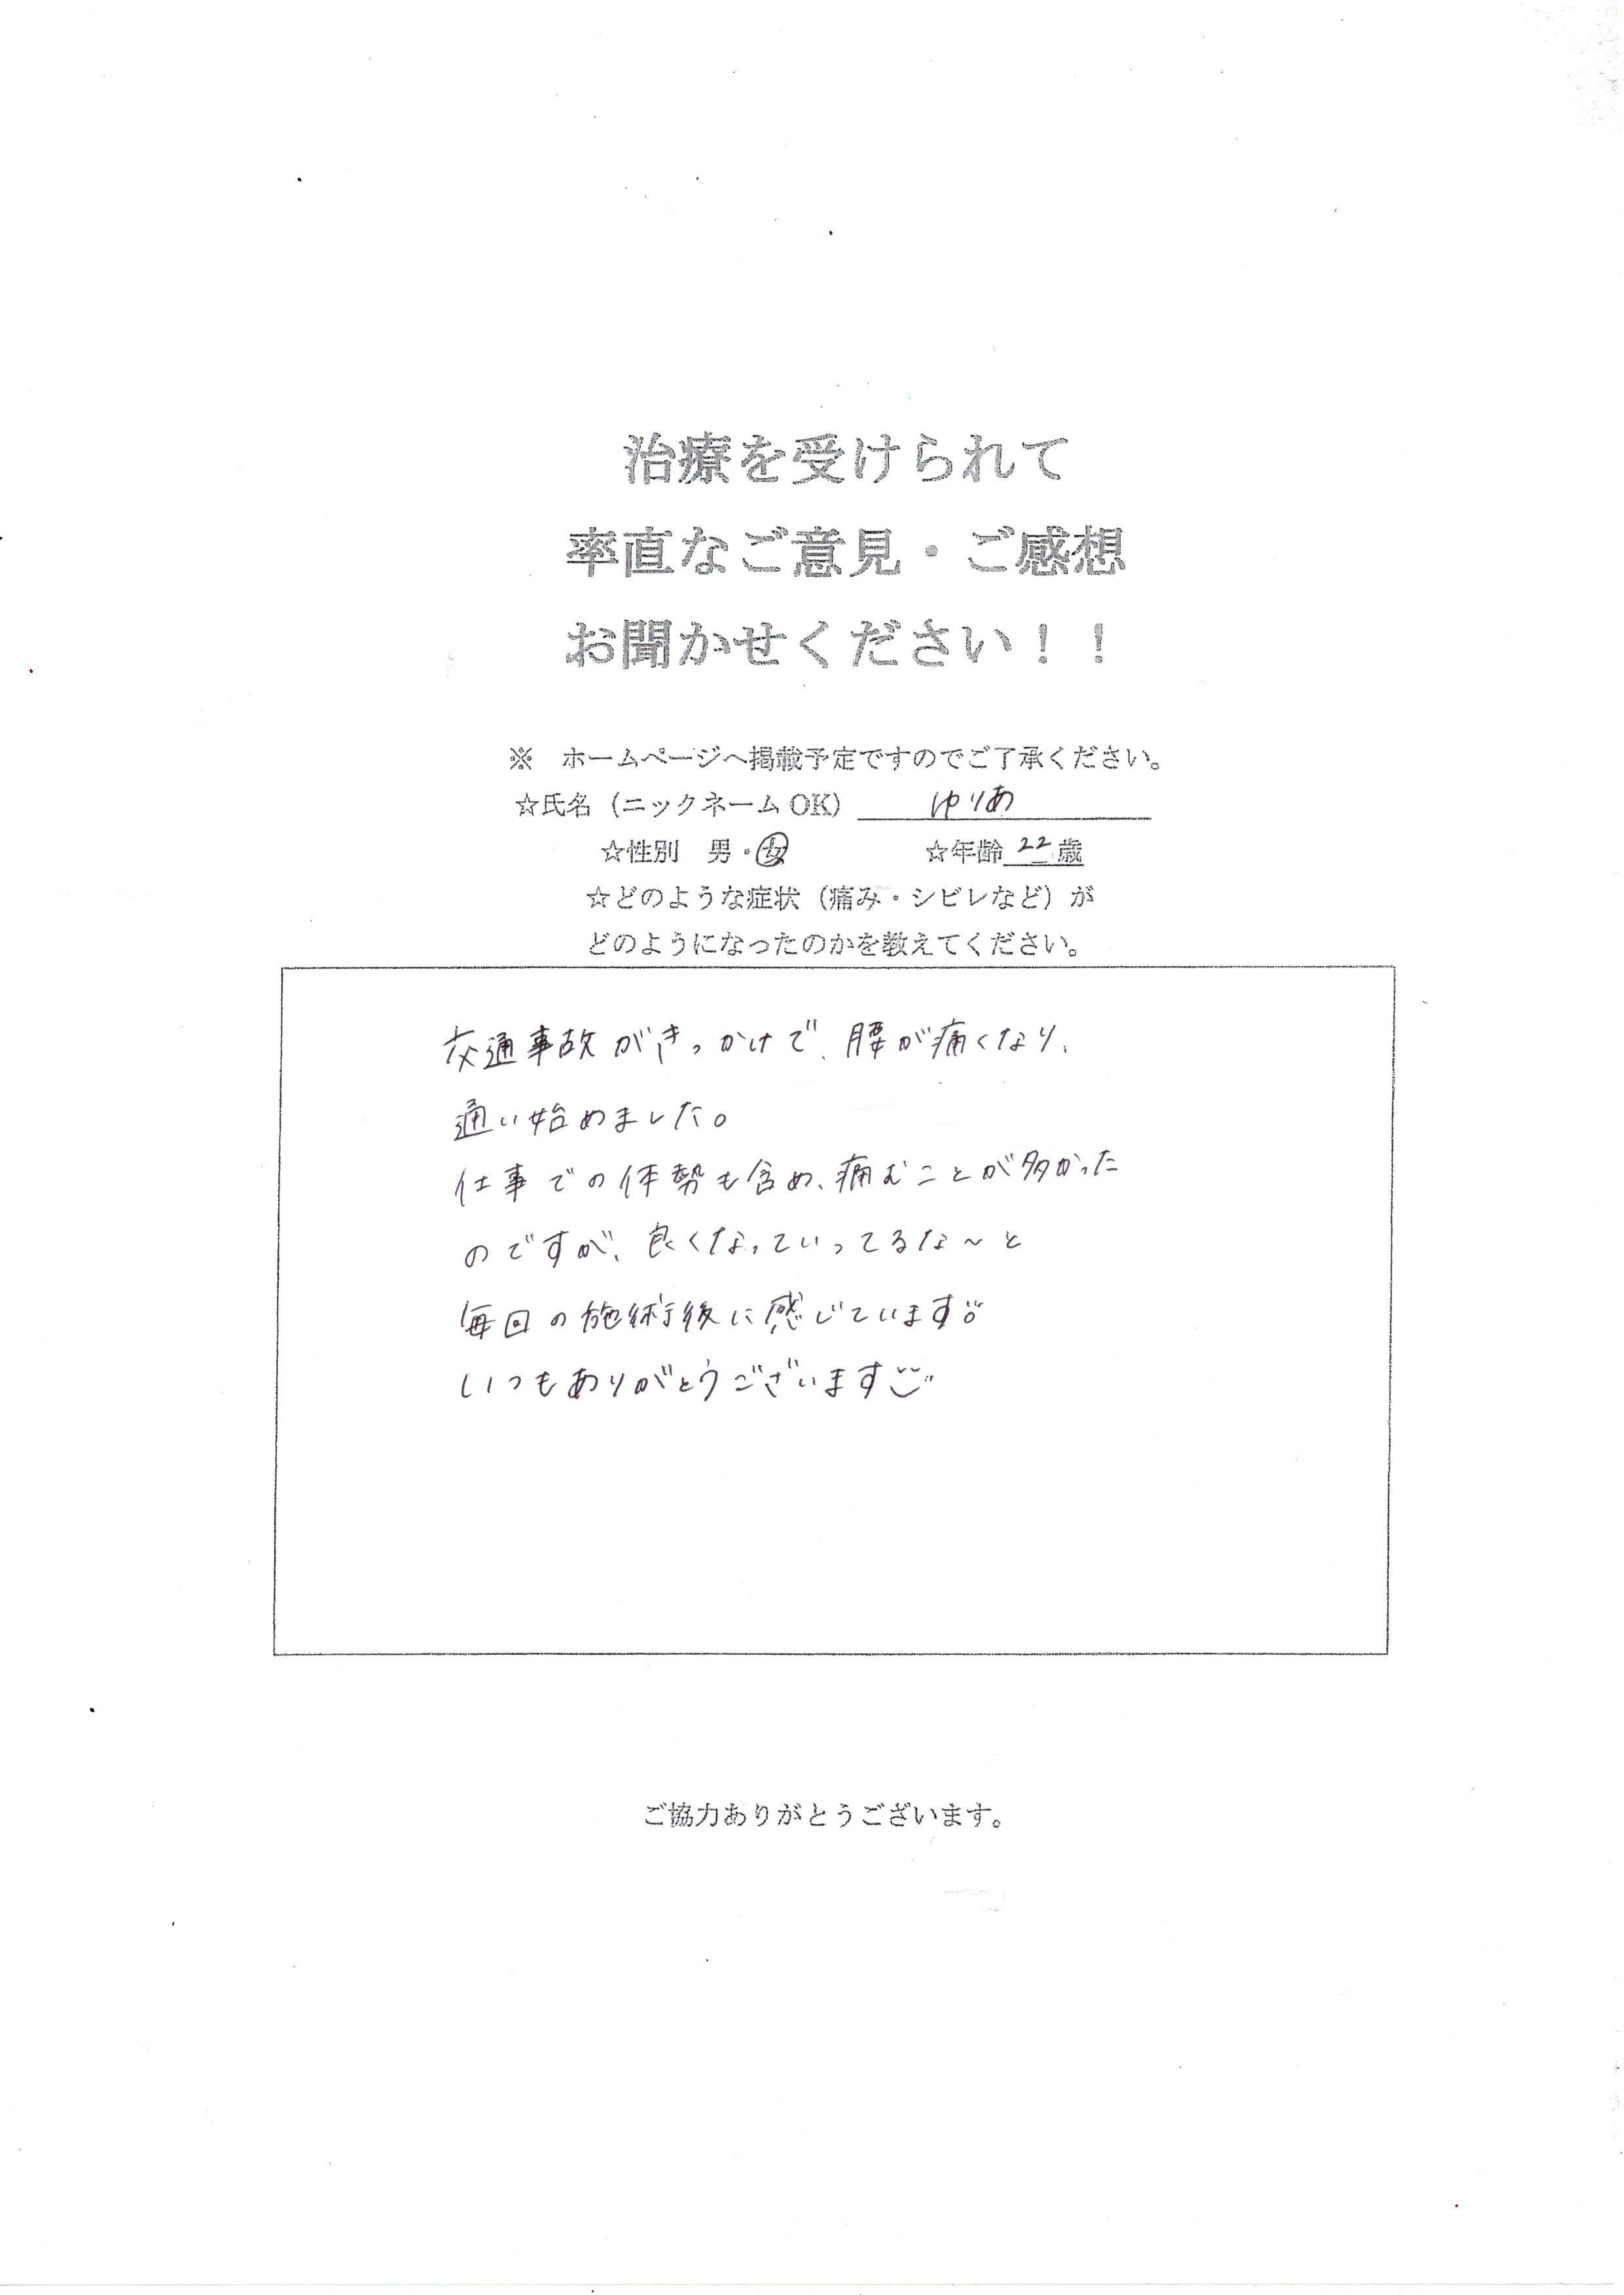 治療を受けられて
率直なご意見・ご感想
お聞かせください！！
※　ホームページへ掲載予定ですのでご了承ください。
☆氏名（ニックネーム OK）ゆりあ
☆性別　男・女　☆年齢 22 歳
☆どのような症状（痛み・シビレなど）が
どのようになったのかを教えてください。
交通事故がきっかけで、腰が痛くなり、
通い始めました。
仕事での体勢も含め、痛むことが多かった
のですが、良くなっていってるな〜と
毎回の施術後に感じています。
いつもありがとうございます
ご協力ありがとうございます。